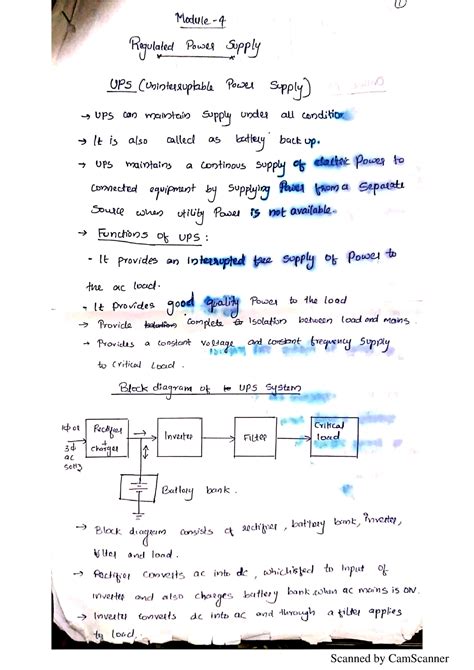 1
Module - 4
Regulated Power Supply
UPS (Uninterruptable Power Supply)
→ UPS can maintain Supply under all condition
→ It is also called as battery back up.
→ UPS maintains a continous supply of electric Power to
connected equipment by supplying Power from a Separate
Source when utility Power is not available.
→ Functions of UPS :
- It provides an Interrupted free supply of Power to
the ac load.
- It provides good quality Power to the load
→ Provide complete Isolation between load and mains.
→ Provides a constant voltage and constant frequency Supply
to Critical Load.
Block diagram of UPS System
1ϕ or
3ϕ
ac
50Hz
Rectifier
+
charger
Inverter
Filter
Critical
load
Battery bank.
→ Block diagram consists of rectifier, battery bank, inverter,
filter and load.
→ Rectifier converts ac into dc, which is fed to Input of
inverter and also charges battery bank when ac mains is ON.
→ Inverter converts dc into ac and through a filter applies
to load.
Scanned by CamScanner